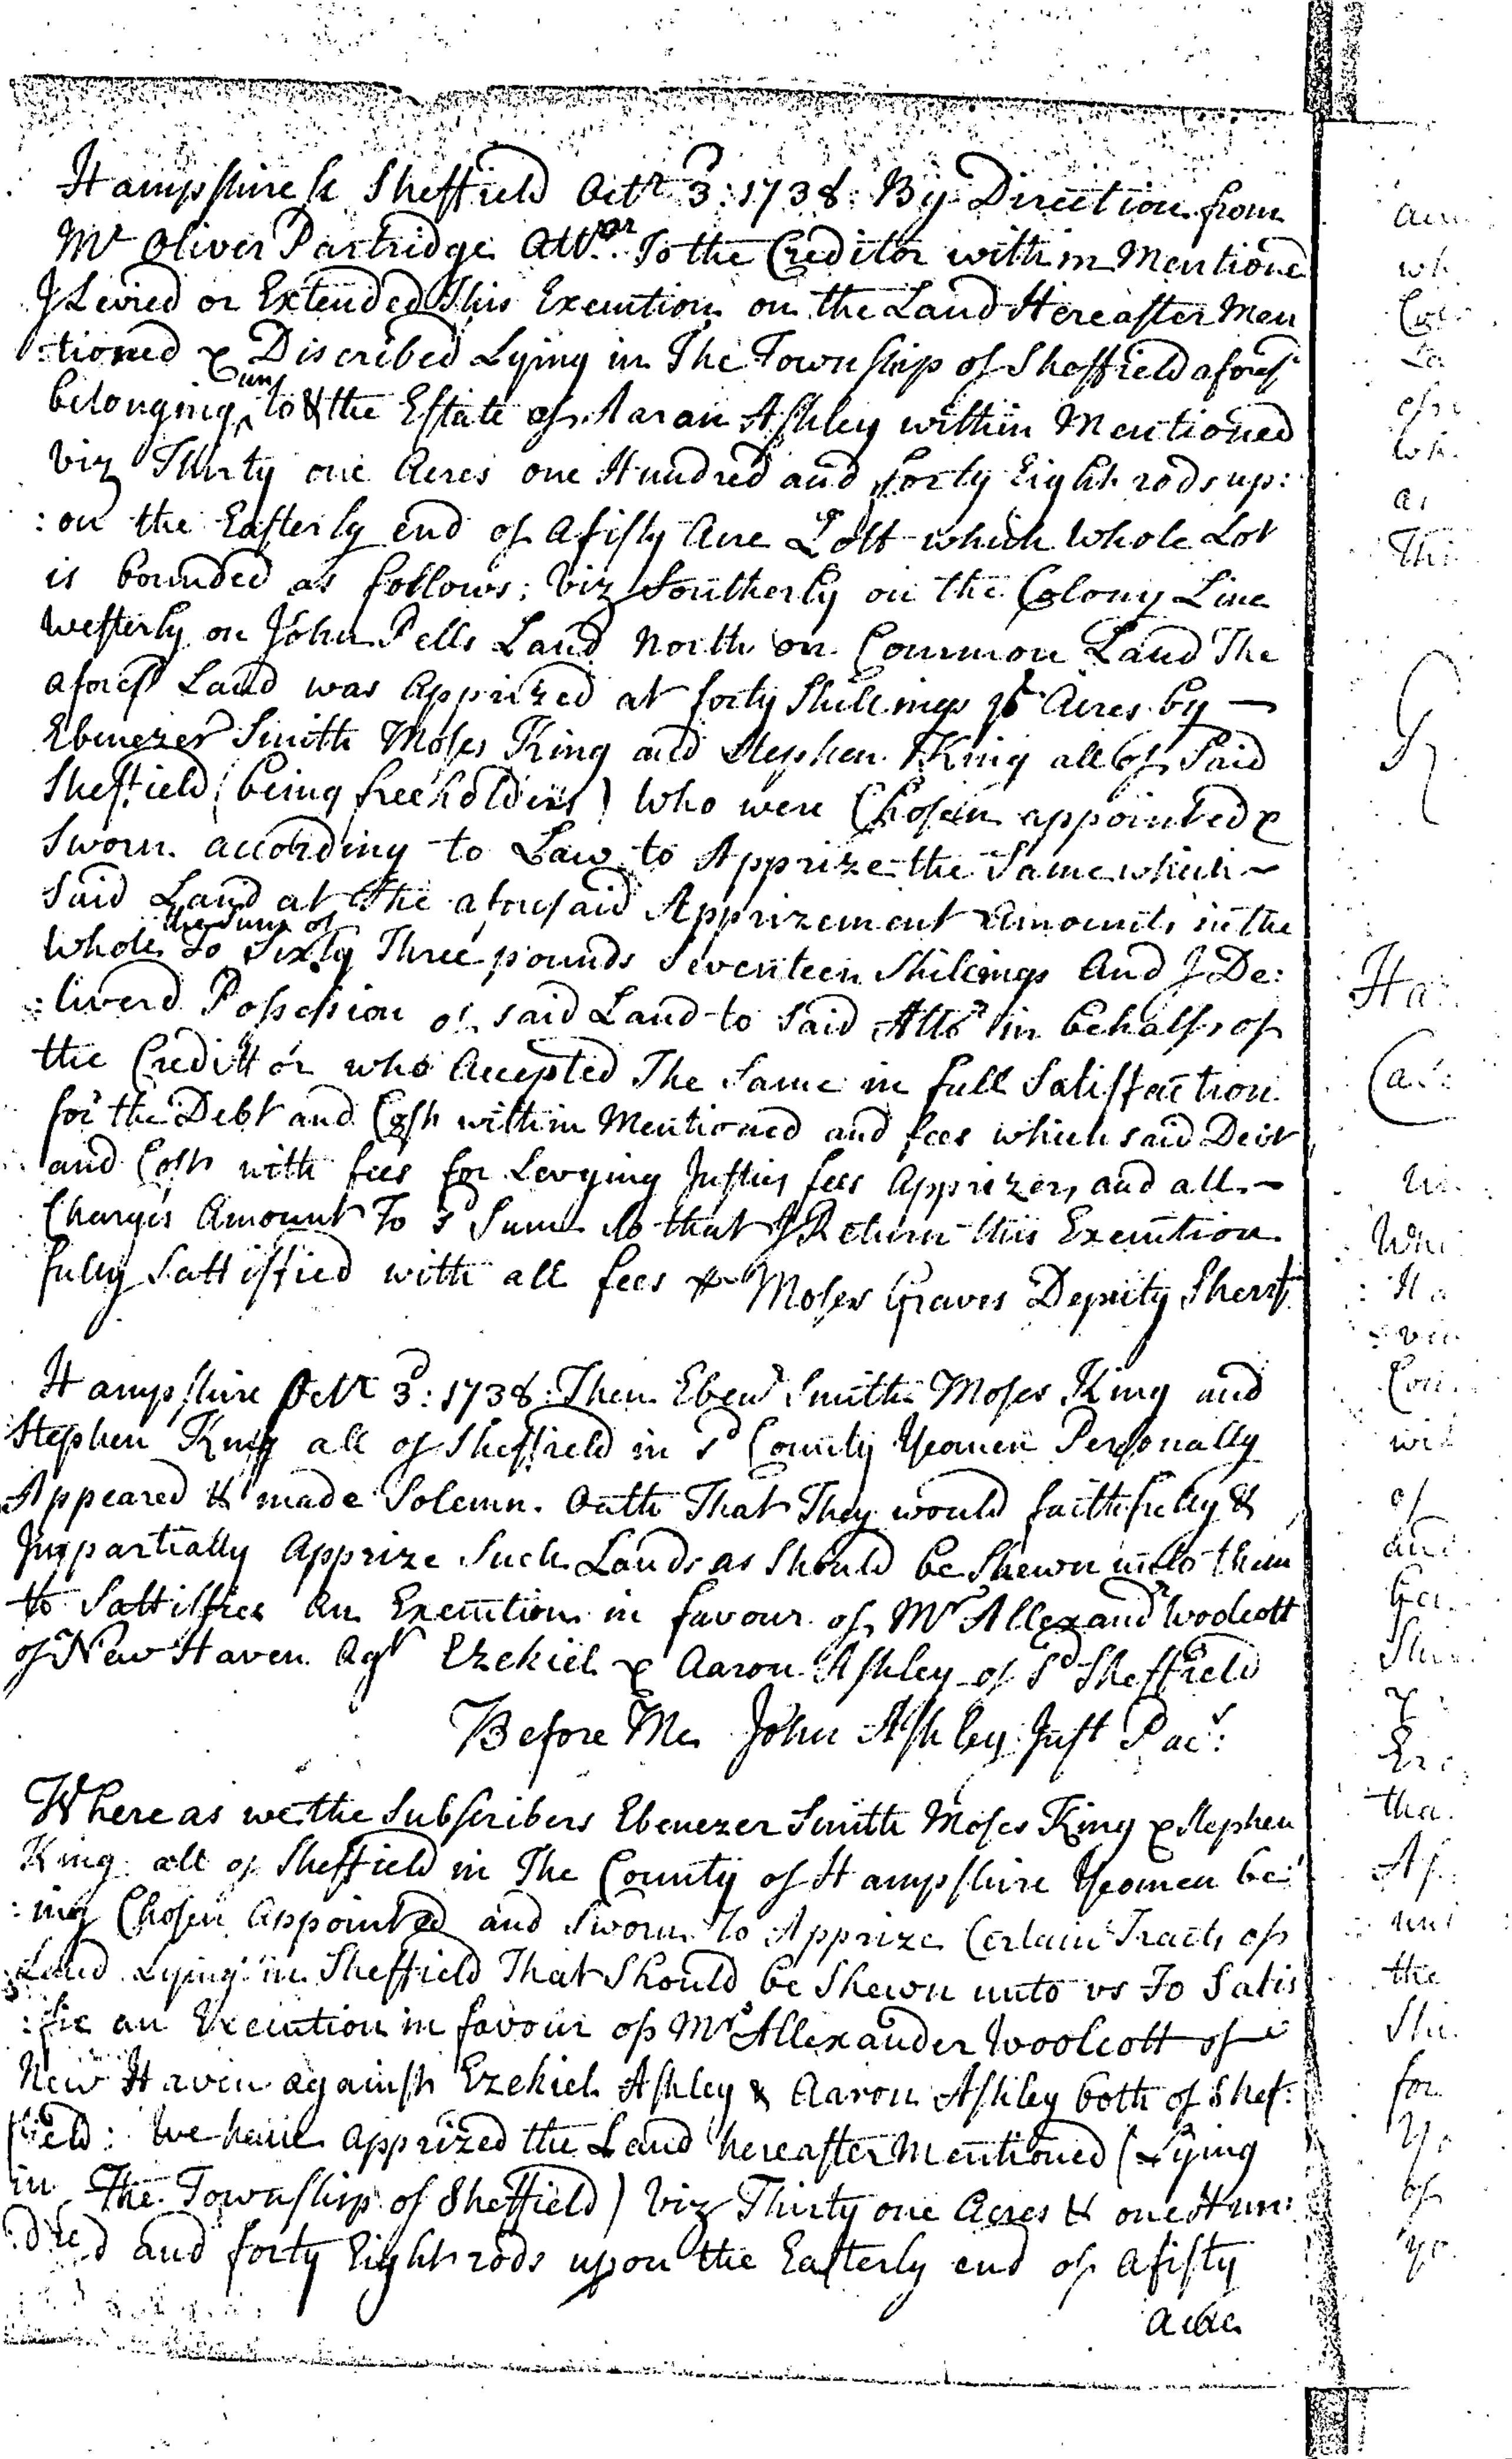 Hampshire ss Sheffield Octr 3d: 1738: By Direction from
Mr Oliver Partridge Attor. To the Creditor within Mentioned
I Levied or Extended This Execution on the Land Hereafter Men
:tioned & Discribed Lying in The Township of Sheffield aforesd
belonging to & the Estate of Aaron Ashley within Mentioned
viz Thirty one Acres one Hundred and forty Eight rods up:
:on the Easterly end of a fifty Acre Lott which Whole Lot
is bounded as follows: viz Southerly on the Colony Line
westerly on John Pells Land North on Common Land The
aforesd Land was Apprized at forty Shillings pr Acres by —
Ebenezer Smith Moses King and Stephen King all of Said
Sheffield (being freeholders) Who were Chosen appointed &
Sworn according to Law to Apprize the Same which ~
Said Land at the aforesaid Apprizement Amounts in the
Whole To the Sum of Sixty Three pounds Seventeen Shillings And I De:
:liverd Possession of said Land to Said Attor in behalf of
the Credittor who Accepted The Same in full Satisfaction
for the Debt and Cost within Mentioned and fees which said Debt
and Cost with fees for Levying Justices fees Apprizers and all ~
Charges Amount To sd Sum so that I Return this Execution
fully Sattisfied with all fees pr Moses Graves Deputy Sherif

Hampshire Octr 3d: 1738: Then Ebenr Smith Moses King and
Stephen King all of Sheffield in sd County Yeomen Personally
Appeared & made Solemn Oath That They would faithfully &
Impartially Apprize Such Lands as Should be Shewn unto them
to Sattisfies An Execution in favour of Mr Allexandr Woolcott
of New Haven Agt Ezekiel & Aaron Ashley of Sd Sheffield
Before Me John Ashley Just Pac:

Whereas we the Subscribers Ebenezer Smith Moses King & Stephen
King all of Sheffield in The County of Hampshire Yeomen be:
:ing Chosen Appointed and Sworn To Apprize Certain Tracts of
Land Lying in Sheffield That Should be Shewn unto us To Satis
:fie an Execution in favour of Mr Allexander Woolcott of
New Haven against Ezekiel Ashley & Aaron Ashley both of Shef:
field: We have Apprized the Land hereafter Mentioned (Lying
in The Township of Sheffield) viz Thirty one Acres & one Hun:
:dred and forty Eight rods upon the Easterly end of a fifty
acre